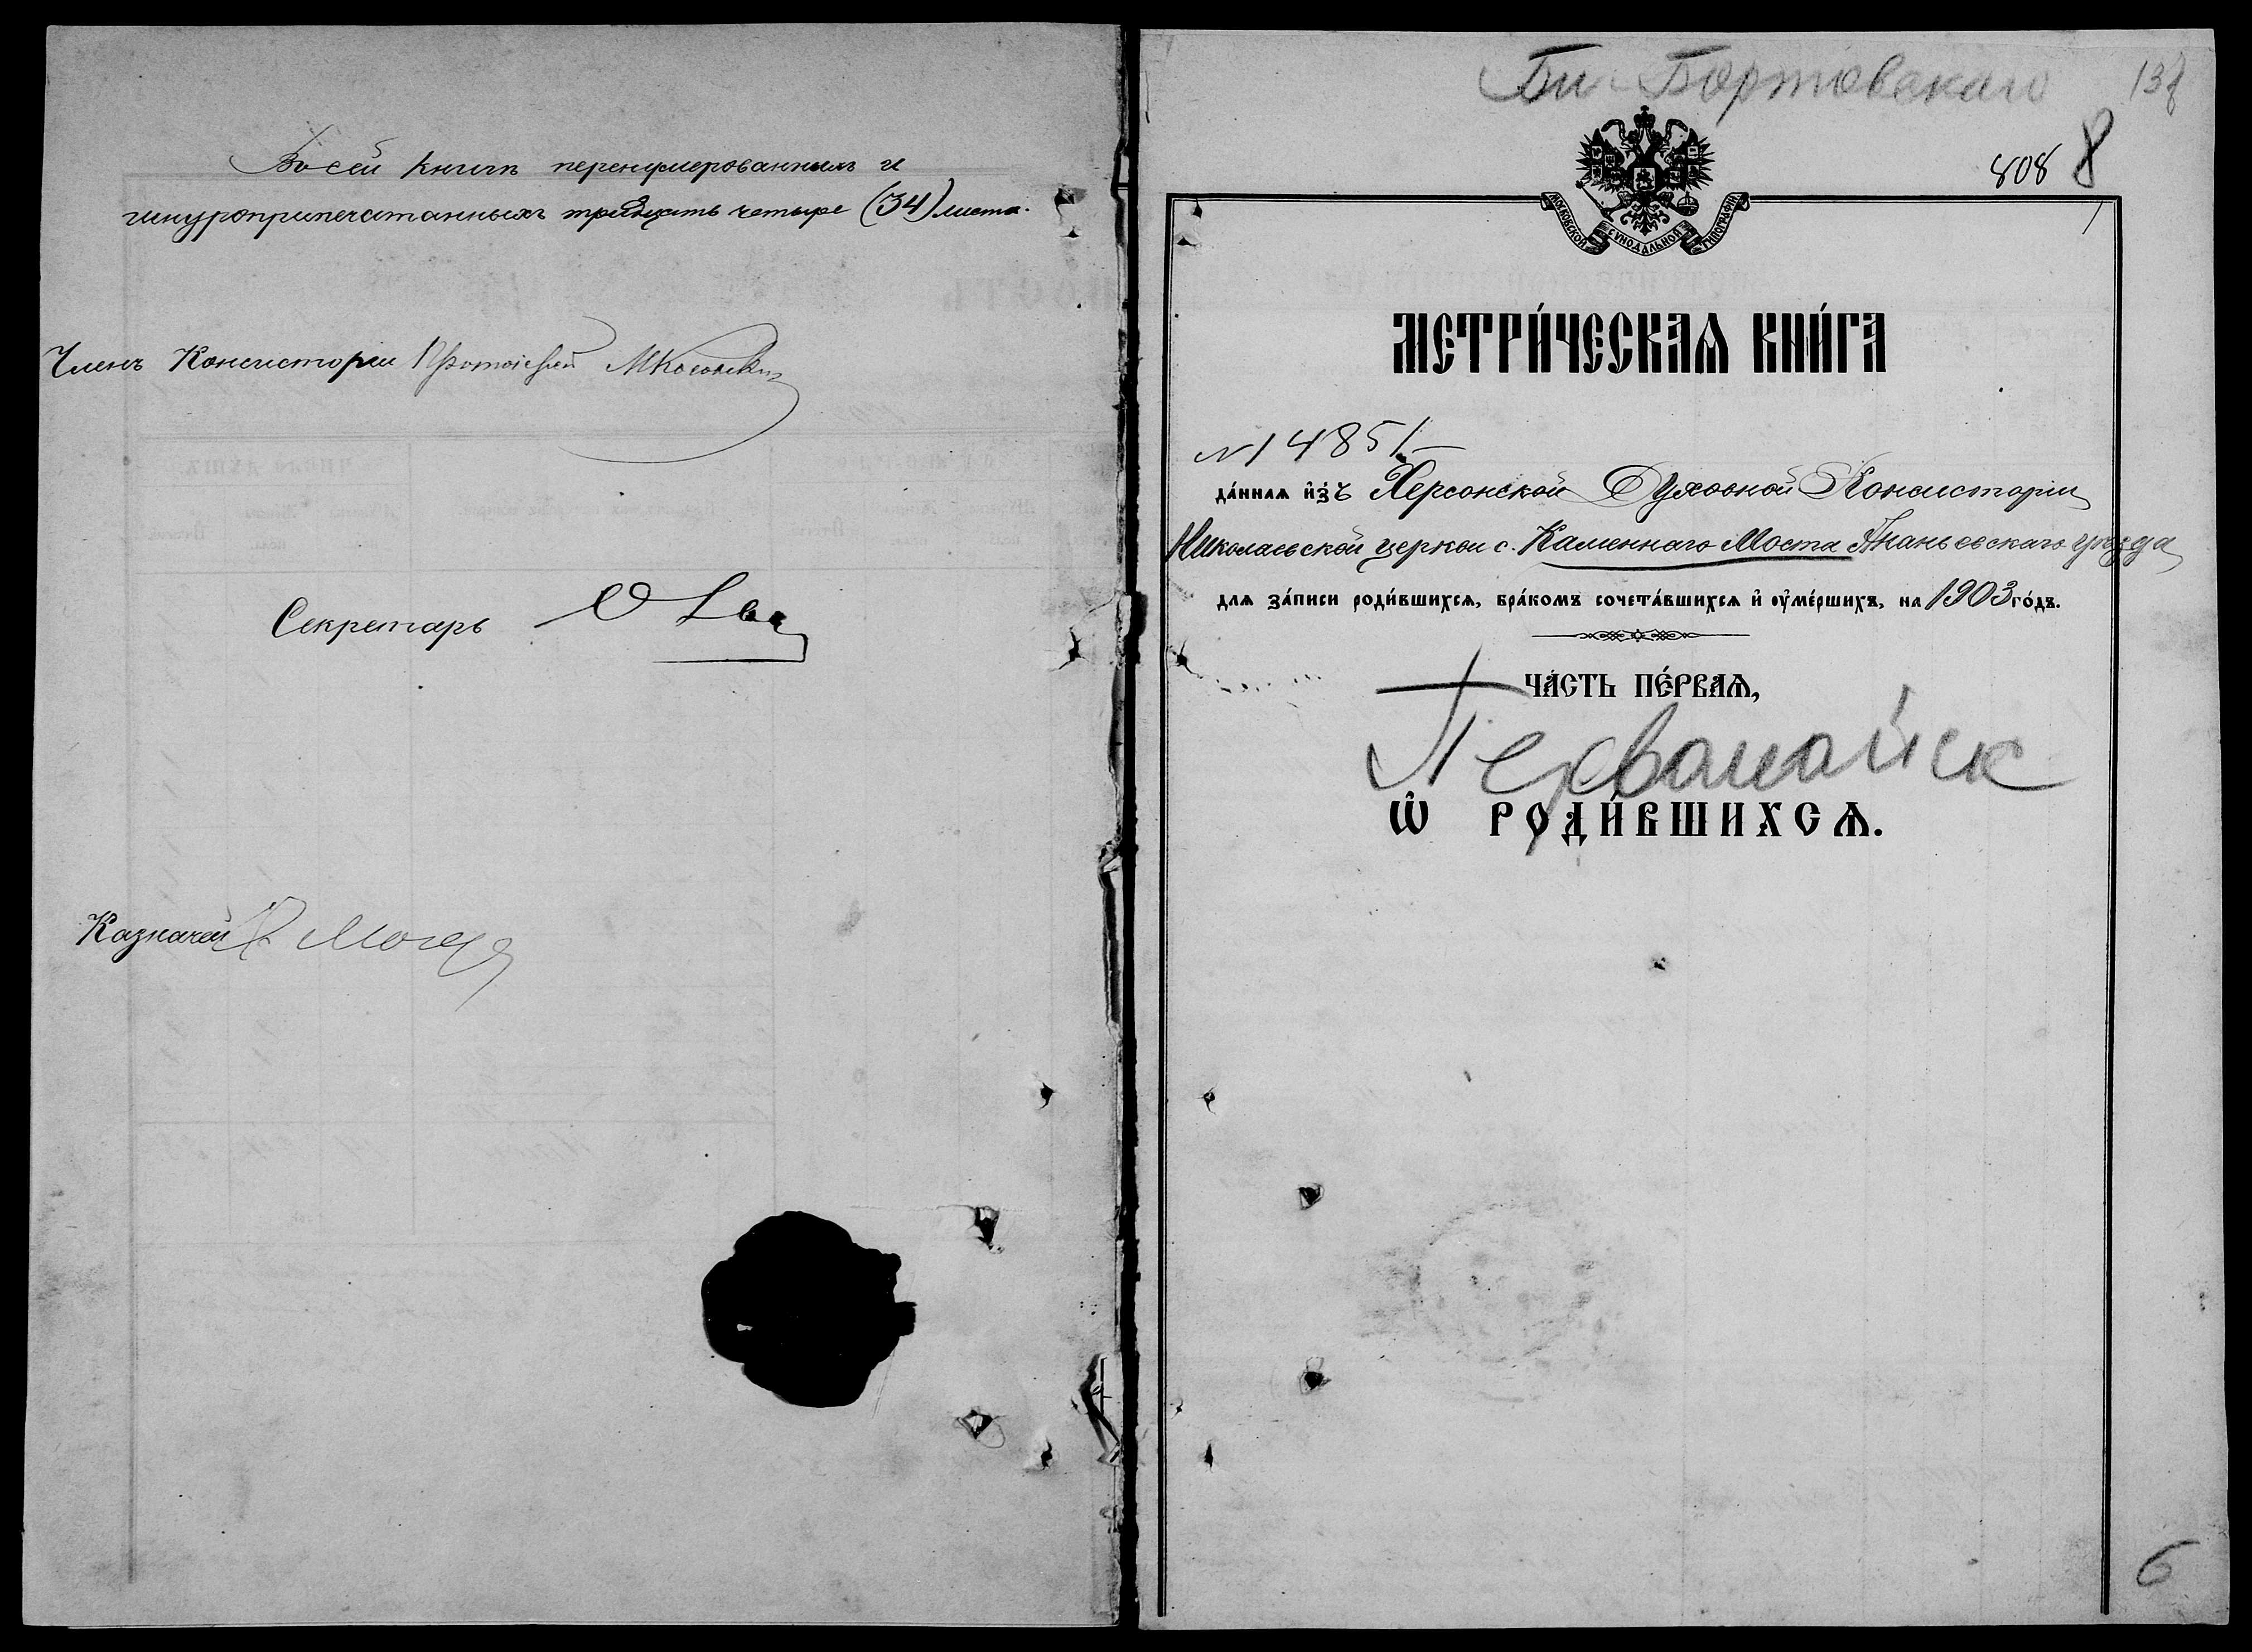 Въ сей книгѣ перенумерованныхъ и
шнуроприпечатанныхъ тридцать четыре (34) листа.
Членъ Консисторіи Протоіерей
Секретарь
Казначей
808 8
МОСКОВСКОЙ СѴНОДАЛЬНОЙ ТИПОГРАФІИ
МЕТРИ́ЧЕСКАѦ КНИ́ГА
N 14851
да́ннаѧ и҆зъ Херсонской Духовной Консисторіи
Николаевской церкви с. Каменнаго Моста Ананьевскаго уѣзда
для за́писи роди́вшихсѧ, бра́комъ сочета́вшихсѧ и҆ ᲂу҆ме́ршихъ, на 1903 го́дъ.
ЧА́СТЬ ПЕ́РВАѦ,
Первомайск
Ѽ РОДИ́ВШИХСѦ.
6